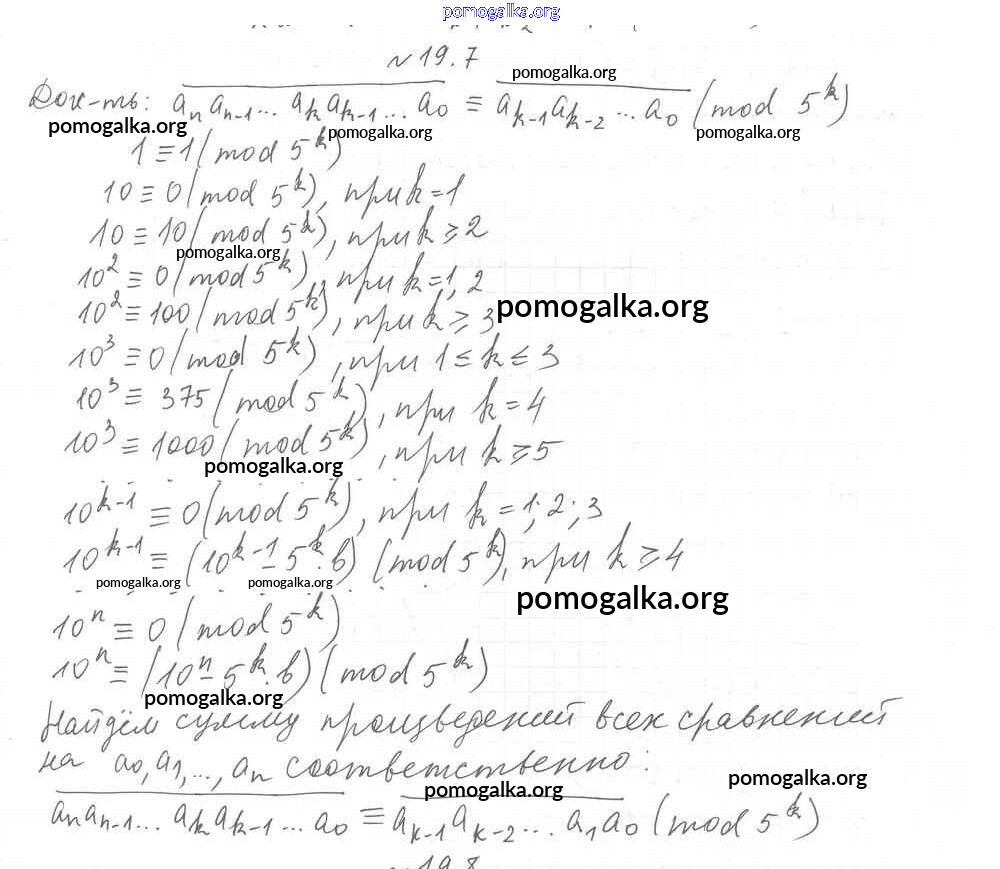 pomogalka.org
№ 19.7
pomogalka.org
Док-ть: aₙaₙ₋₁... aₖaₖ₋₁... a₀ ≡ aₖ₋₁aₖ₋₂ ... a₀ (mod 5ᵏ)
pomogalka.org pomogalka.org pomogalka.org
1 ≡ 1 (mod 5ᵏ)
10 ≡ 0 (mod 5ᵏ), при k = 1
10 ≡ 10 (mod 5ᵏ), при k ≥ 2
pomogalka.org
10² ≡ 0 (mod 5ᵏ), при k = 1, 2
10² ≡ 100 (mod 5ᵏ), при k ≥ 3
pomogalka.org
10³ ≡ 0 (mod 5ᵏ), при 1 ≤ k ≤ 3
10³ ≡ 375 (mod 5ᵏ), при k = 4
10³ ≡ 1000 (mod 5ᵏ), при k ≥ 5
pomogalka.org
10ᵏ⁻¹ ≡ 0 (mod 5ᵏ), при k = 1; 2; 3
10ᵏ⁻¹ ≡ (10ᵏ⁻¹ - 5ᵏ·b) (mod 5ᵏ), при k ≥ 4
pomogalka.org pomogalka.org pomogalka.org
10ⁿ ≡ 0 (mod 5ᵏ)
10ⁿ ≡ (10ⁿ - 5ᵏ·b) (mod 5ᵏ)
pomogalka.org
Найдём сумму произведений всех сравнений
на a₀, a₁, ..., aₙ соответственно:
pomogalka.org pomogalka.org
aₙaₙ₋₁... aₖaₖ₋₁... a₀ ≡ aₖ₋₁aₖ₋₂ ... a₁a₀ (mod 5ᵏ)